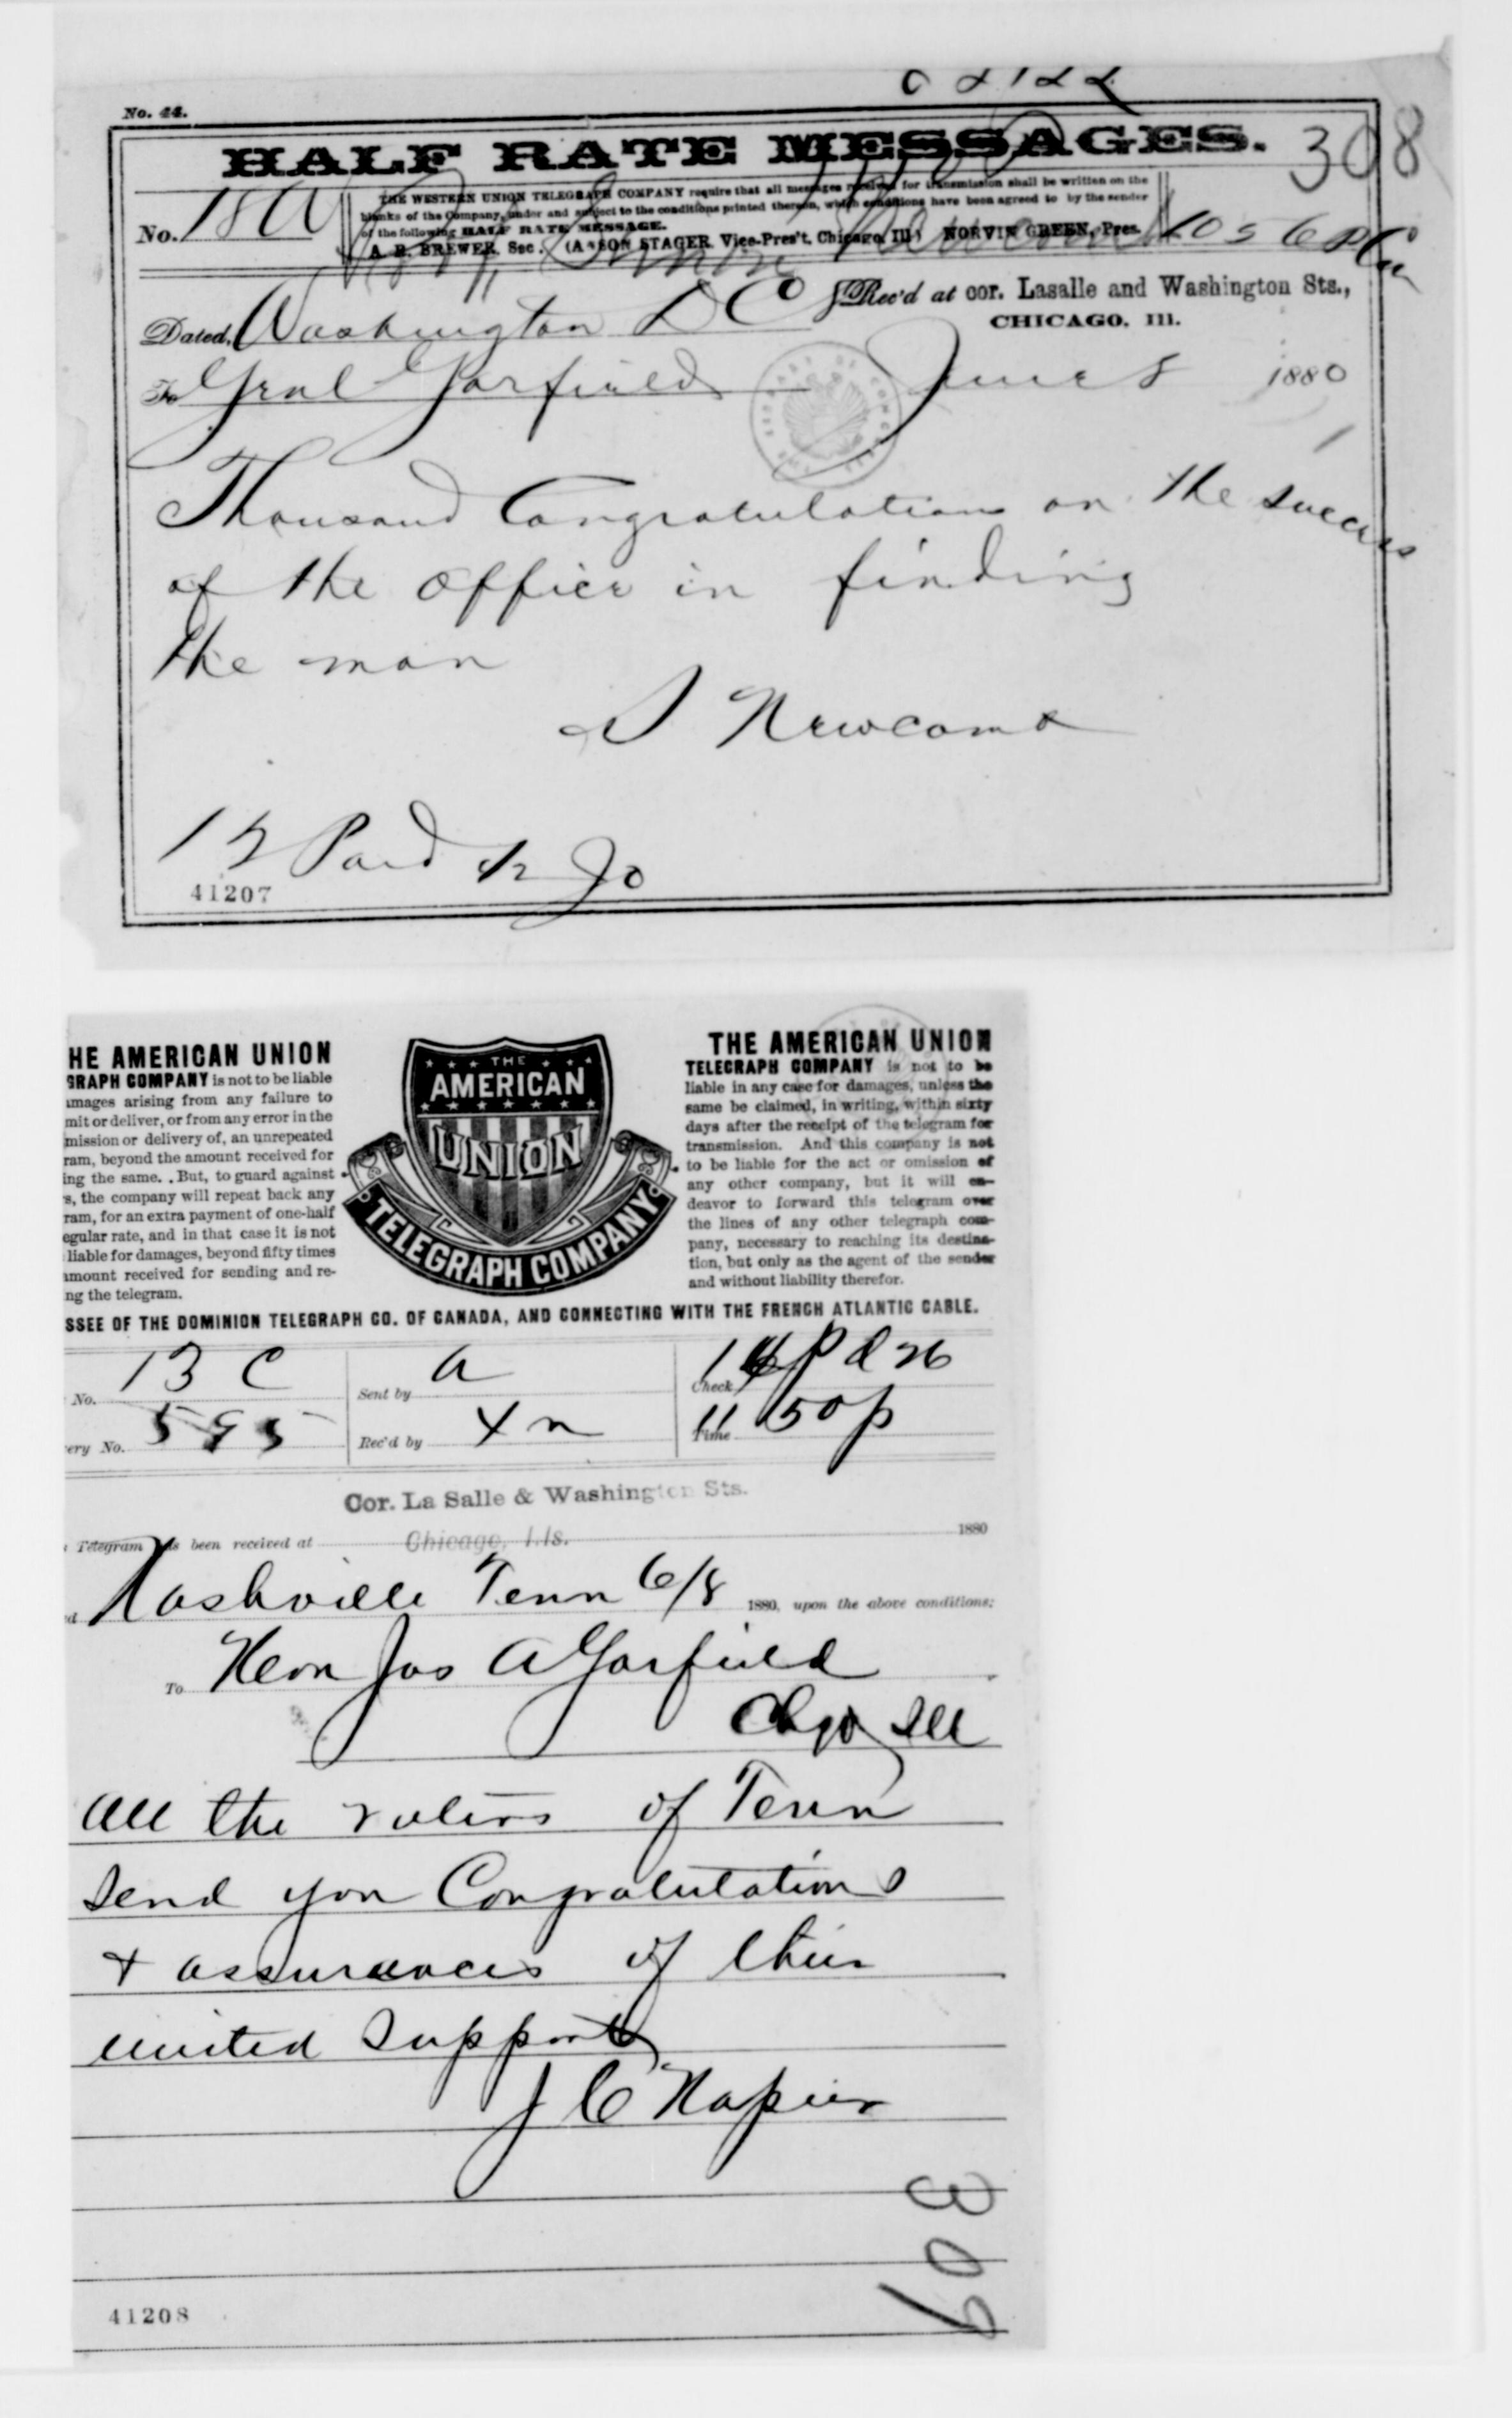 No. 44.
HALF RATE MESSAGES.
308
THE WESTERN UNION TELEGRAPH COMPANY require that all messages received for transmission shall be written on the
blanks of the Company, under and subject to the conditions printed thereon, which conditions have been agreed to by the sender
of the following HALF RATE MESSAGE.
A. R. BREWER, Sec. (ANSON STAGER, Vice-Pres't, Chicago, Ill.) NORVIN GREEN, Pres.
No. 18
Rec'd at cor. Lasalle and Washington Sts.,
CHICAGO, Ill.
Dated, Washington D C
To Genl Garfield June 8 1880
Thousand Congratulations on the success
of the office in finding
the man
S Newcomb
Paid 1/2
41207
HE AMERICAN UNION
GRAPH COMPANY is not to be liable
amages arising from any failure to
mit or deliver, or from any error in the
mission or delivery of, an unrepeated
ram, beyond the amount received for
ing the same. . But, to guard against
s, the company will repeat back any
ram, for an extra payment of one-half
egular rate, and in that case it is not
liable for damages, beyond fifty times
amount received for sending and re-
ng the telegram.
THE AMERICAN UNION TELEGRAPH COMPANY
THE AMERICAN UNION
TELEGRAPH COMPANY is not to be
liable in any case for damages, unless the
same be claimed, in writing, within sixty
days after the receipt of the telegram for
transmission. And this company is not
to be liable for the act or omission of
any other company, but it will en-
deavor to forward this telegram over
the lines of any other telegraph com-
pany, necessary to reaching its destina-
tion, but only as the agent of the sender
and without liability therefor.
SSEE OF THE DOMINION TELEGRAPH CO. OF CANADA, AND CONNECTING WITH THE FRENCH ATLANTIC CABLE.
No. 13 C Sent by a Check
ery No. 595 Rec'd by Time 11 50 p
Cor. La Salle & Washington Sts.
Telegram has been received at Chicago, Ills. 1880
Nashville Tenn 6/8 1880, upon the above conditions:
To Hon Jas A Garfield
Chgo Ill
All the voters of Tenn
send you Congratulations
+ assurances of their
united support
J C Napier
309
41208